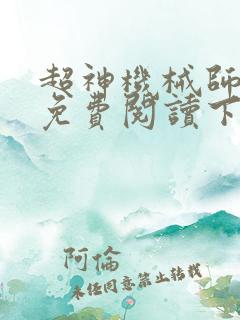 超神機械師
免費閱讀下
阿倫
未任同意禁止转载